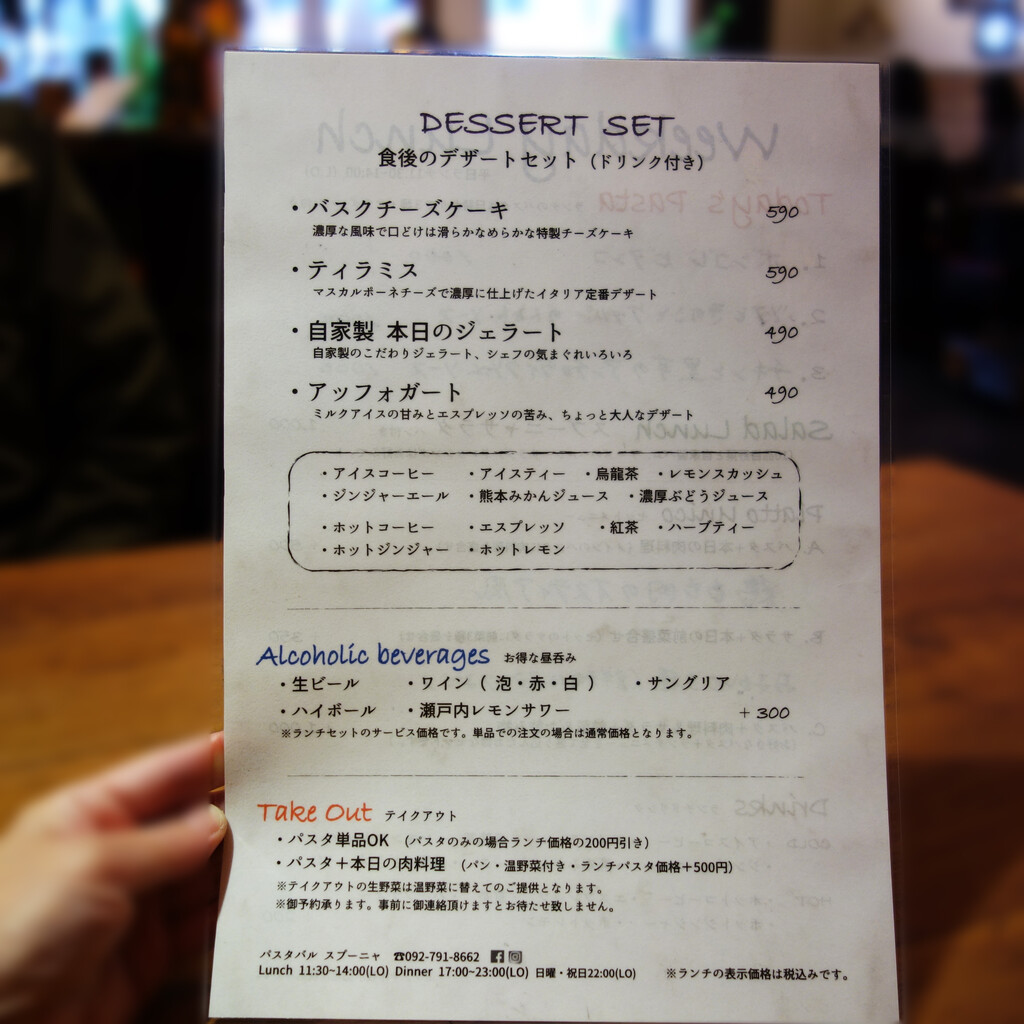 DESSERT SET
食後のデザートセット（ドリンク付き）
・バスクチーズケーキ 590
濃厚な風味で口どけは滑らかなめらかな特製チーズケーキ
・ティラミス 590
マスカルポーネチーズで濃厚に仕上げたイタリア定番デザート
・自家製 本日のジェラート 490
自家製のこだわりジェラート、シェフの気まぐれいろいろ
・アッフォガート 490
ミルクアイスの甘みとエスプレッソの苦み、ちょっと大人なデザート
・アイスコーヒー ・アイスティー ・烏龍茶 ・レモンスカッシュ
・ジンジャーエール ・熊本みかんジュース ・濃厚ぶどうジュース
・ホットコーヒー ・エスプレッソ ・紅茶 ・ハーブティー
・ホットジンジャー ・ホットレモン
Alcoholic beverages お得な昼呑み
・生ビール ・ワイン（ 泡・赤・白 ） ・サングリア
・ハイボール ・瀬戸内レモンサワー ＋300
※ランチセットのサービス価格です。単品での注文の場合は通常価格となります。
Take Out テイクアウト
・パスタ単品OK （パスタのみの場合ランチ価格の200円引き）
・パスタ＋本日の肉料理 （パン・温野菜付き・ランチパスタ価格＋500円）
※テイクアウトの生野菜は温野菜に替えてのご提供となります。
※御予約承ります。事前に御連絡頂けますとお待たせ致しません。
パスタバル スプーニャ ☎092-791-8662
Lunch 11:30~14:00(LO) Dinner 17:00~23:00(LO) 日曜・祝日22:00(LO) ※ランチの表示価格は税込みです。